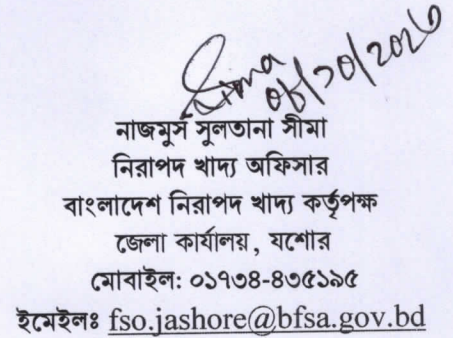 নাজমুস সুলতানা সীমা
নিরাপদ খাদ্য অফিসার
বাংলাদেশ নিরাপদ খাদ্য কর্তৃপক্ষ
জেলা কার্যালয়, যশোর
মোবাইল: ০১৭৩৪-৪৩৫১৯৫
ইমেইলঃ fso.jashore@bfsa.gov.bd